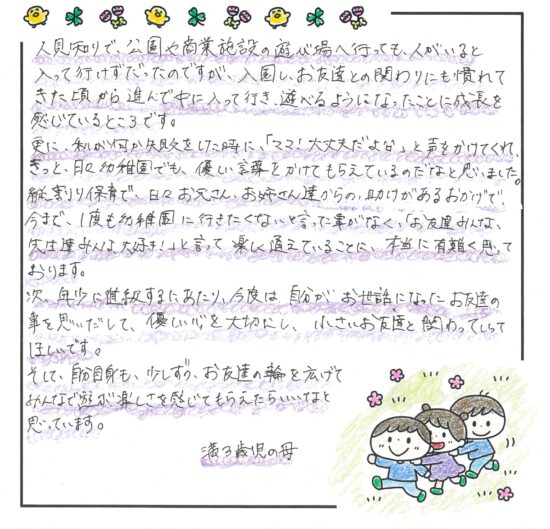 人見知りで、公園や商業施設の遊び場へ行っても、人がいると
入って行けずだったのですが、入園し、お友達との関わりにも慣れて
きた頃から進んで中に入って行き、遊べるようになったことに成長を
感じているところです。
更に、私が何か失敗をした時に、「ママ!大丈夫だよな」と声をかけてくれ、
きっと、日々幼稚園でも、優しい言葉をかけてもらえているのだなと思いました。
縦割り保育で、日々お兄さん、お姉さん達からの助けがあるおかげで
今まで、1度も幼稚園に行きたくないと言った事がなく、「お友達みんな、
先生達みんな大好き!」と言って楽しく通えていることに、本当に有難く思って
おります。
次、年少に進級するにあたり、今度は自分が、お世話になったお友達の
事を思いだして、優しい心を大切にし、小さいお友達と関わっていって
ほしいです。
そして、自分自身も、少しずつ、お友達の輪を広げて
みんなで遊ぶ楽しさを感じてもらえたらいいなと
思っています。
満3歳児の母